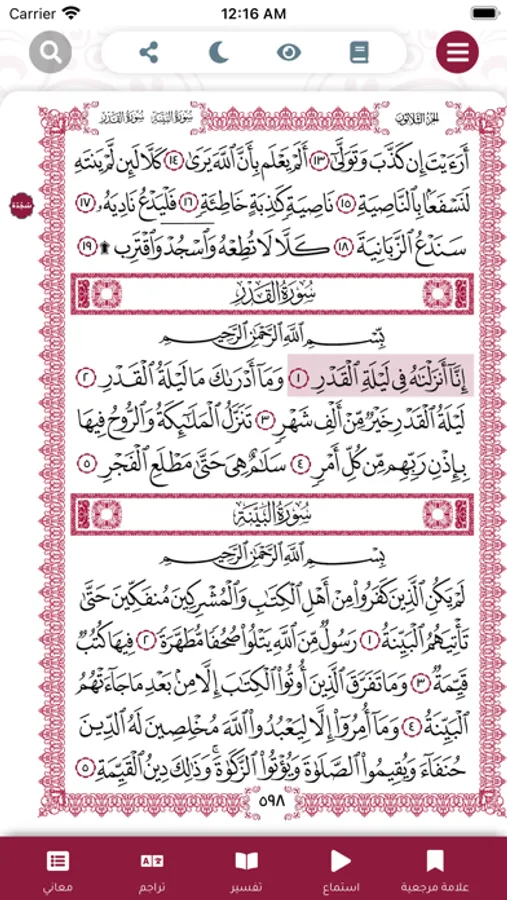 Carrier 12:16 AM
الجزء الثلاثون سورة البينة سورة القدر
أَرَءَيْتَ إِن كَذَّبَ وَتَوَلَّىٰٓ ١٣ أَلَمْ يَعْلَم بِأَنَّ ٱللَّهَ يَرَىٰ ١٤ كَلَّا لَئِن لَّمْ يَنتَهِ
لَنَسْفَعًۢا بِٱلنَّاصِيَةِ ١٥ نَاصِيَةٍ كَٰذِبَةٍ خَاطِئَةٍ ١٦ فَلْيَدْعُ نَادِيَهُۥ ١٧
سجدة
سَنَدْعُ ٱلزَّبَانِيَةَ ١٨ كَلَّا لَا تُطِعْهُ وَٱسْجُدْ وَٱقْتَرِب ۩ ١٩
سُورَةُ القَدْرِ
بِسْمِ ٱللَّهِ ٱلرَّحْمَٰنِ ٱلرَّحِيمِ
إِنَّآ أَنزَلْنَٰهُ فِى لَيْلَةِ ٱلْقَدْرِ ١ وَمَآ أَدْرَىٰكَ مَا لَيْلَةُ ٱلْقَدْرِ ٢
لَيْلَةُ ٱلْقَدْرِ خَيْرٌ مِّنْ أَلْفِ شَهْرٍ ٣ تَنَزَّلُ ٱلْمَلَٰٓئِكَةُ وَٱلرُّوحُ فِيهَا
بِإِذْنِ رَبِّهِم مِّن كُلِّ أَمْرٍ ٤ سَلَٰمٌ هِىَ حَتَّىٰ مَطْلَعِ ٱلْفَجْرِ ٥
سُورَةُ البَيِّنَةِ
بِسْمِ ٱللَّهِ ٱلرَّحْمَٰنِ ٱلرَّحِيمِ
لَمْ يَكُنِ ٱلَّذِينَ كَفَرُوا۟ مِنْ أَهْلِ ٱلْكِتَٰبِ وَٱلْمُشْرِكِينَ مُنفَكِّينَ حَتَّىٰ
تَأْتِيَهُمُ ٱلْبَيِّنَةُ ١ رَسُولٌ مِّنَ ٱللَّهِ يَتْلُوا۟ صُحُفًا مُّطَهَّرَةً ٢ فِيهَا كُتُبٌ
قَيِّمَةٌ ٣ وَمَا تَفَرَّقَ ٱلَّذِينَ أُوتُوا۟ ٱلْكِتَٰبَ إِلَّا مِنۢ بَعْدِ مَا جَآءَتْهُمُ
ٱلْبَيِّنَةُ ٤ وَمَآ أُمِرُوٓا۟ إِلَّا لِيَعْبُدُوا۟ ٱللَّهَ مُخْلِصِينَ لَهُ ٱلدِّينَ
حُنَفَآءَ وَيُقِيمُوا۟ ٱلصَّلَوٰةَ وَيُؤْتُوا۟ ٱلزَّكَوٰةَ ۚ وَذَٰلِكَ دِينُ ٱلْقَيِّمَةِ ٥
٥٩٨
علامة مرجعية استماع تفسير تراجم معاني